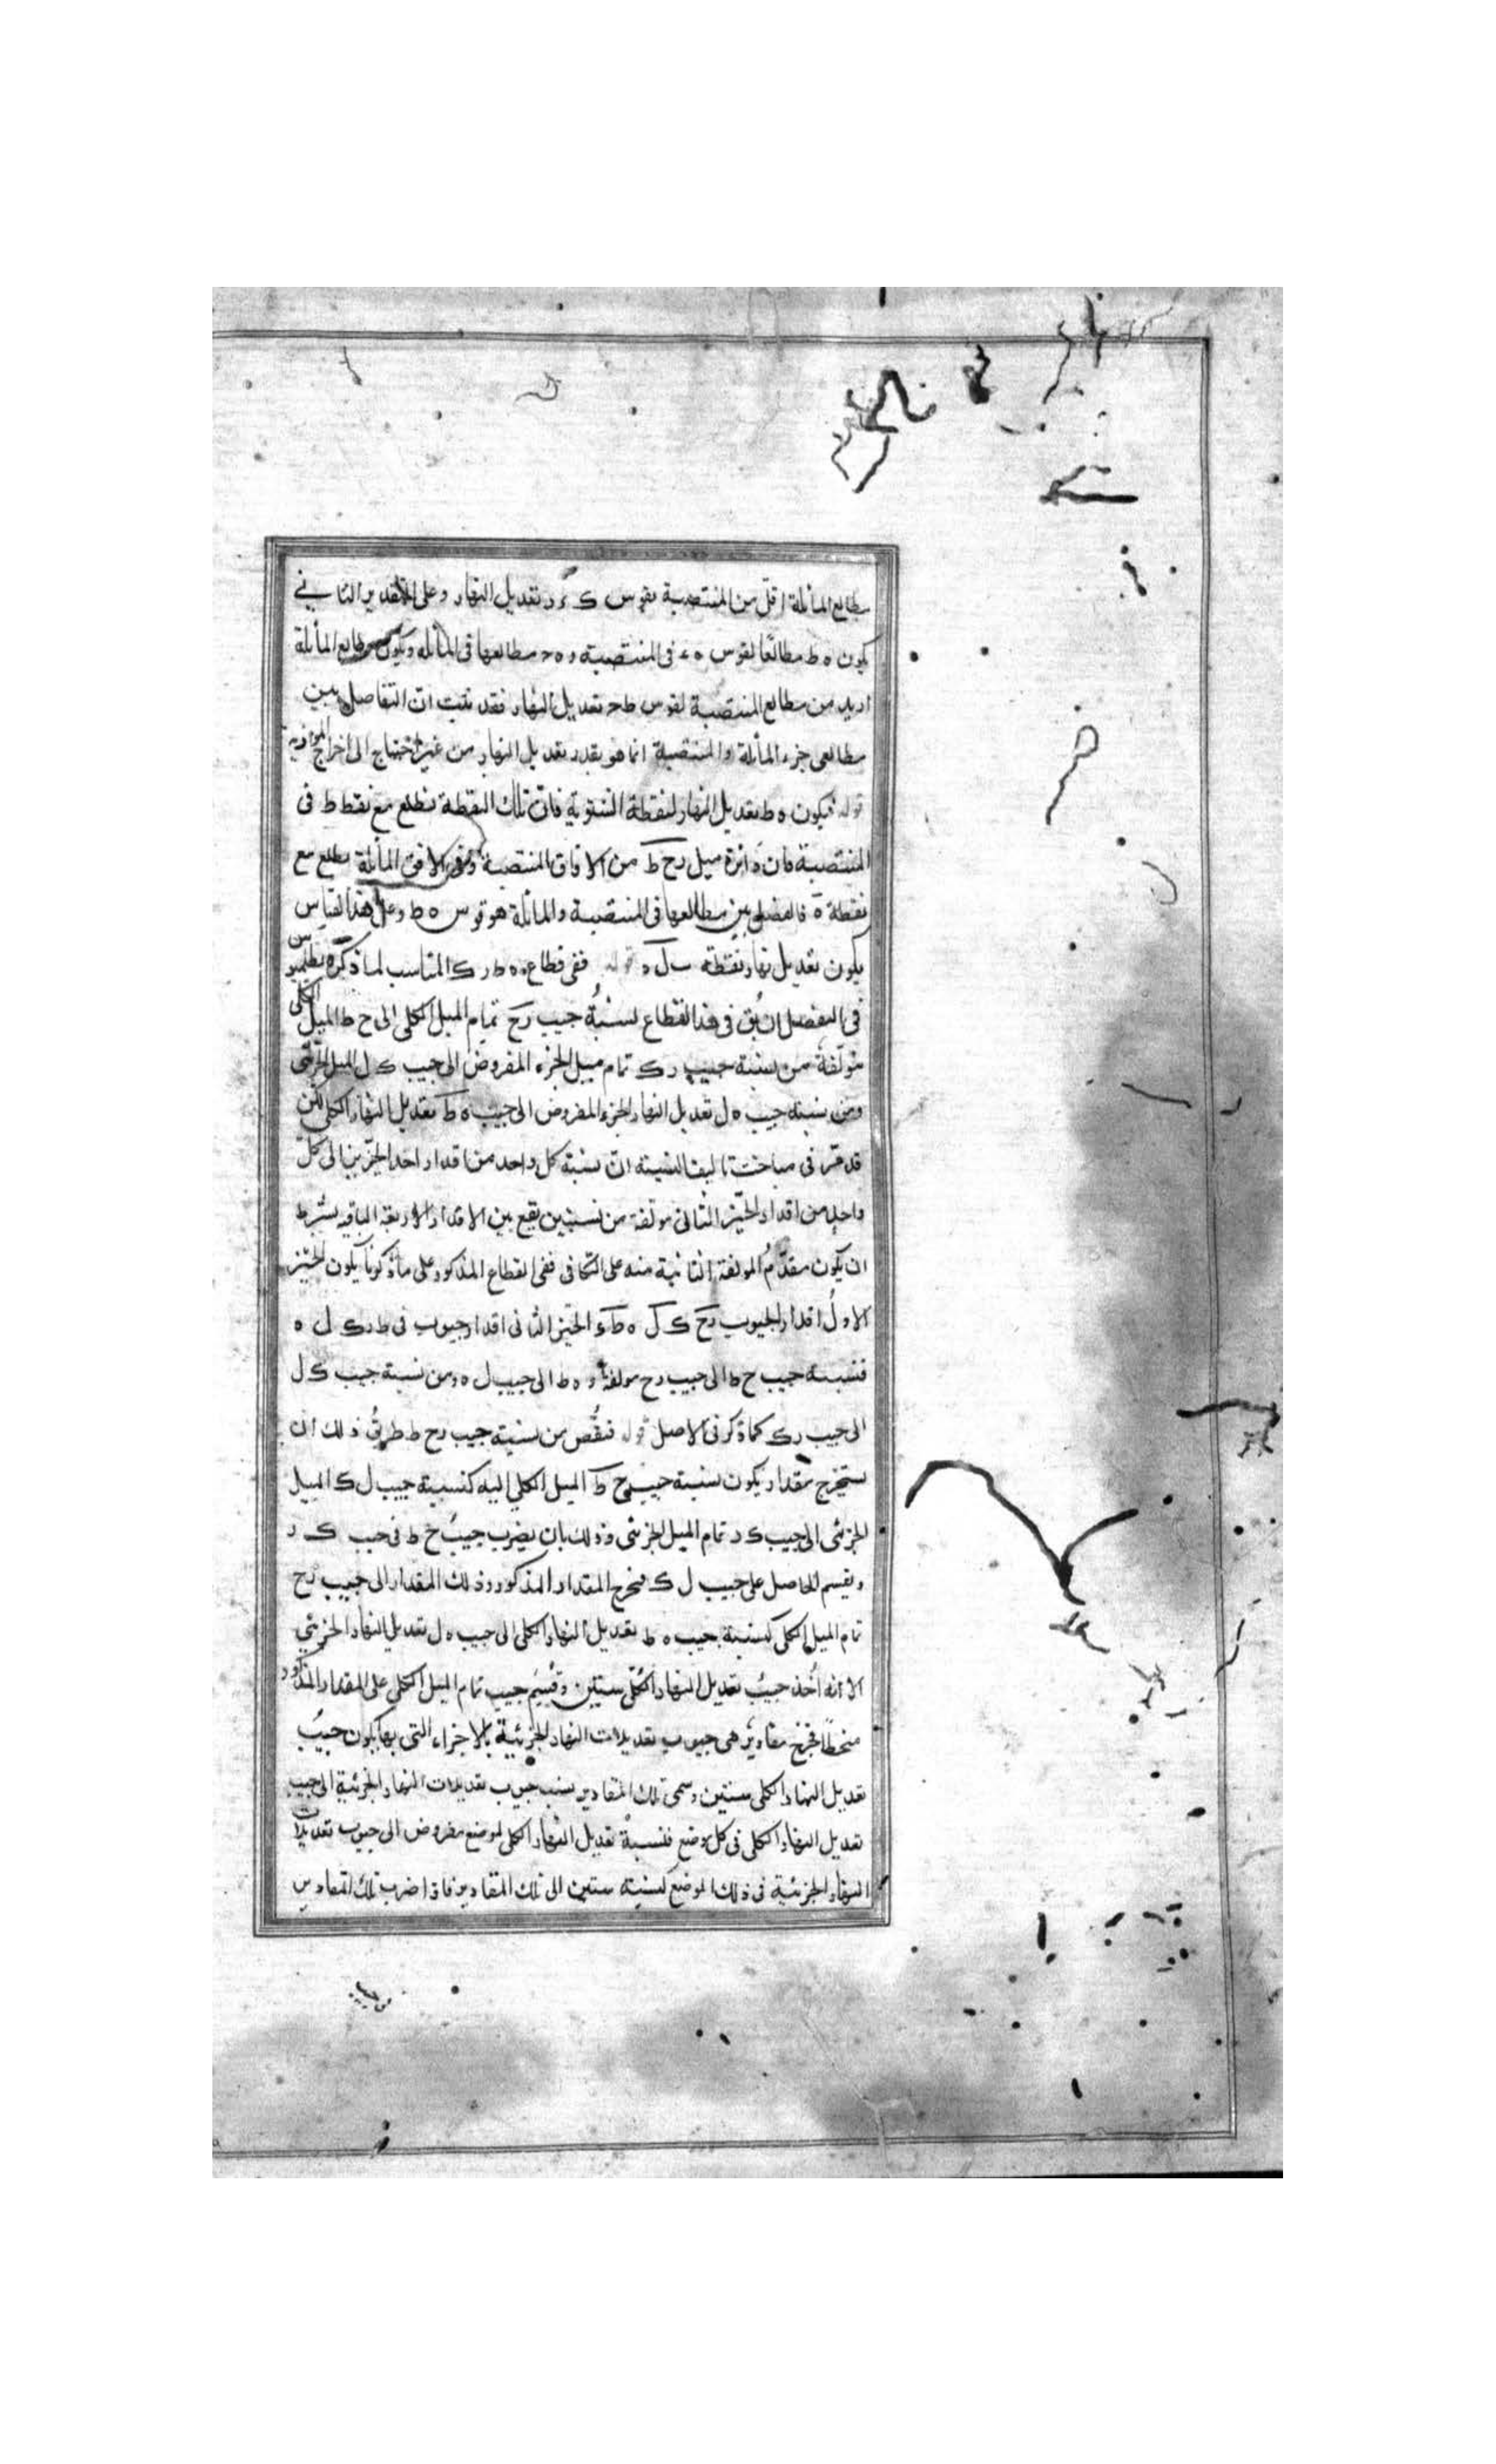 مطالع المائلة اقل من المنتصبة بقوس ك ء د تعديل النهار وعلى التقدير الثاني
يكون ه ط مطالعًا لقوس ه ء فى المنتصبة و ه ح مطالعها فى المائله ويكون مطالع المائلة
ازيد من مطالع المنتصبة لقوس ط ح تعديل النهار فقد ثبت ان التفاصل بين
مطالعى جزء المائلة والمنتصبة انما هو بقدر تعديل النهار من غير احتياج الى اخراج الموازية
قوله فيكون ه ط تعديل النهار لنقطة الشتوية فان تلك النقطة تطلع مع نقطة ط فى
المنتصبة فان دائرة ميل رح ط من الافاق المنتصبة وفى الافق المائلة يطلع مع
نقطة ه فالفضل بين مطالعها فى المنتصبة والمائلة هو قوس ه ط وعلى هذا القياس
يكون تعديل نهار نقطة ل ه قوله ففى قطاع ه ط ر ك المناسب لما ذكره بطلميوس
فى التفصيل ان يُق فى هذا القطاع لنسبةُ جيب رح تمام الميل الكلى الى ح ط الميل الكلى
مؤلفة من نسبة جيب ر ك تمام ميل الجزء المفروض الى جيب ك ل الميل الجزئى
ومن نسبته جيب ه ل تعديل النهار الجزء المفروض الى جيب ه ط تعديل النهار الكلى لكن
قد مرّ فى مباحث تاليف النسبته ان نسبته كل واحد من اقدار احد الحيزين الى كل
واحد من اقدار الحيّز الثانى مولفة من نسبتين يقع بين الاقدار الاربعة الباقيه بشرط
ان يكون مقدّمُ المولفة الثانية منه على التكافى ففى القطاع المذكور على ما ذكرنا يكون الحيّز
الاولُ اقدار الجيوب رح ك ل ه ط و الحيّز الثانى اقدار جيوب فى ط ر ك ل ه
فنسبته جيب ح ط الى جيب رح مولفة ه ط الى جيب ل ه ومن نسبة جيب ك ل
الى جيب ر ك كما ذكر فى الاصل قوله فنقُص من نسبة جيب رح ط طريق ذلك ان
يستخرج مقدار يكون نسبة جيب ح ط الميل الكلى اليه كنسبة جيب ل ك الميل
الجزئى الى جيب ك ر تمام الميل الجزئى وذلك بان يضرب جيب ح ط فى جيب ك ر
ويقسم الحاصل على جيب ل ك فيخرج المقدار المذكور وذلك المقدار الى جيب رح
تمام الميل الكلى كنسبة جيب ه ط تعديل النهار الكلى الى جيب ه ل تعديل النهار الجزئي
الا انه اُخذ جيبُ تعديل النهار الكلى ستين وقُسِمَ جيب تمام الميل الكلى على المقدار المذكور
منحطًا فخرج مقادير هى جيوب تعديلات النهار الجزئية بالاجزاء التى بها يكون جيبُ
تعديل النهار الكلى ستين وسمى تلك المقادير نسب جيوب تعديلات النهار الجزئية الى جيب
تعديل النهار الكلى فى كل موضع فنسبةُ تعديل النهار الكلى لموضع مفروض الى جيوب تعديلات
النهار الجزئية فى ذلك الموضع كنسبته ستين الى تلك المقادير فاذا ضرب تلك المقادير
فى جيب